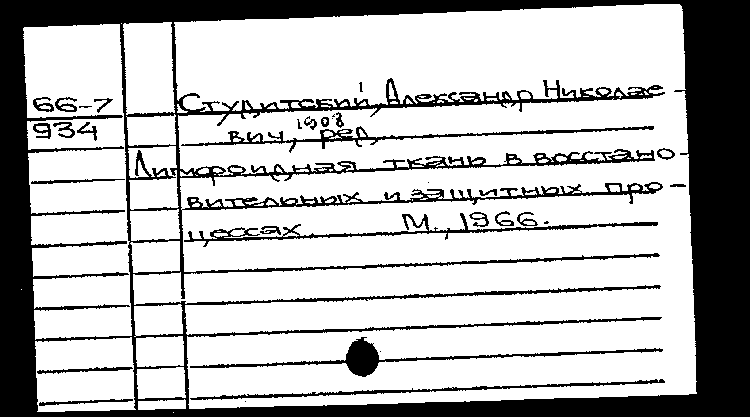 66-7
934
Студитский, Александр Николае-
вич, 1908 ред.
Лимфоидная ткань в восстано-
вительных и защитных про-
цессах. М., 1966.